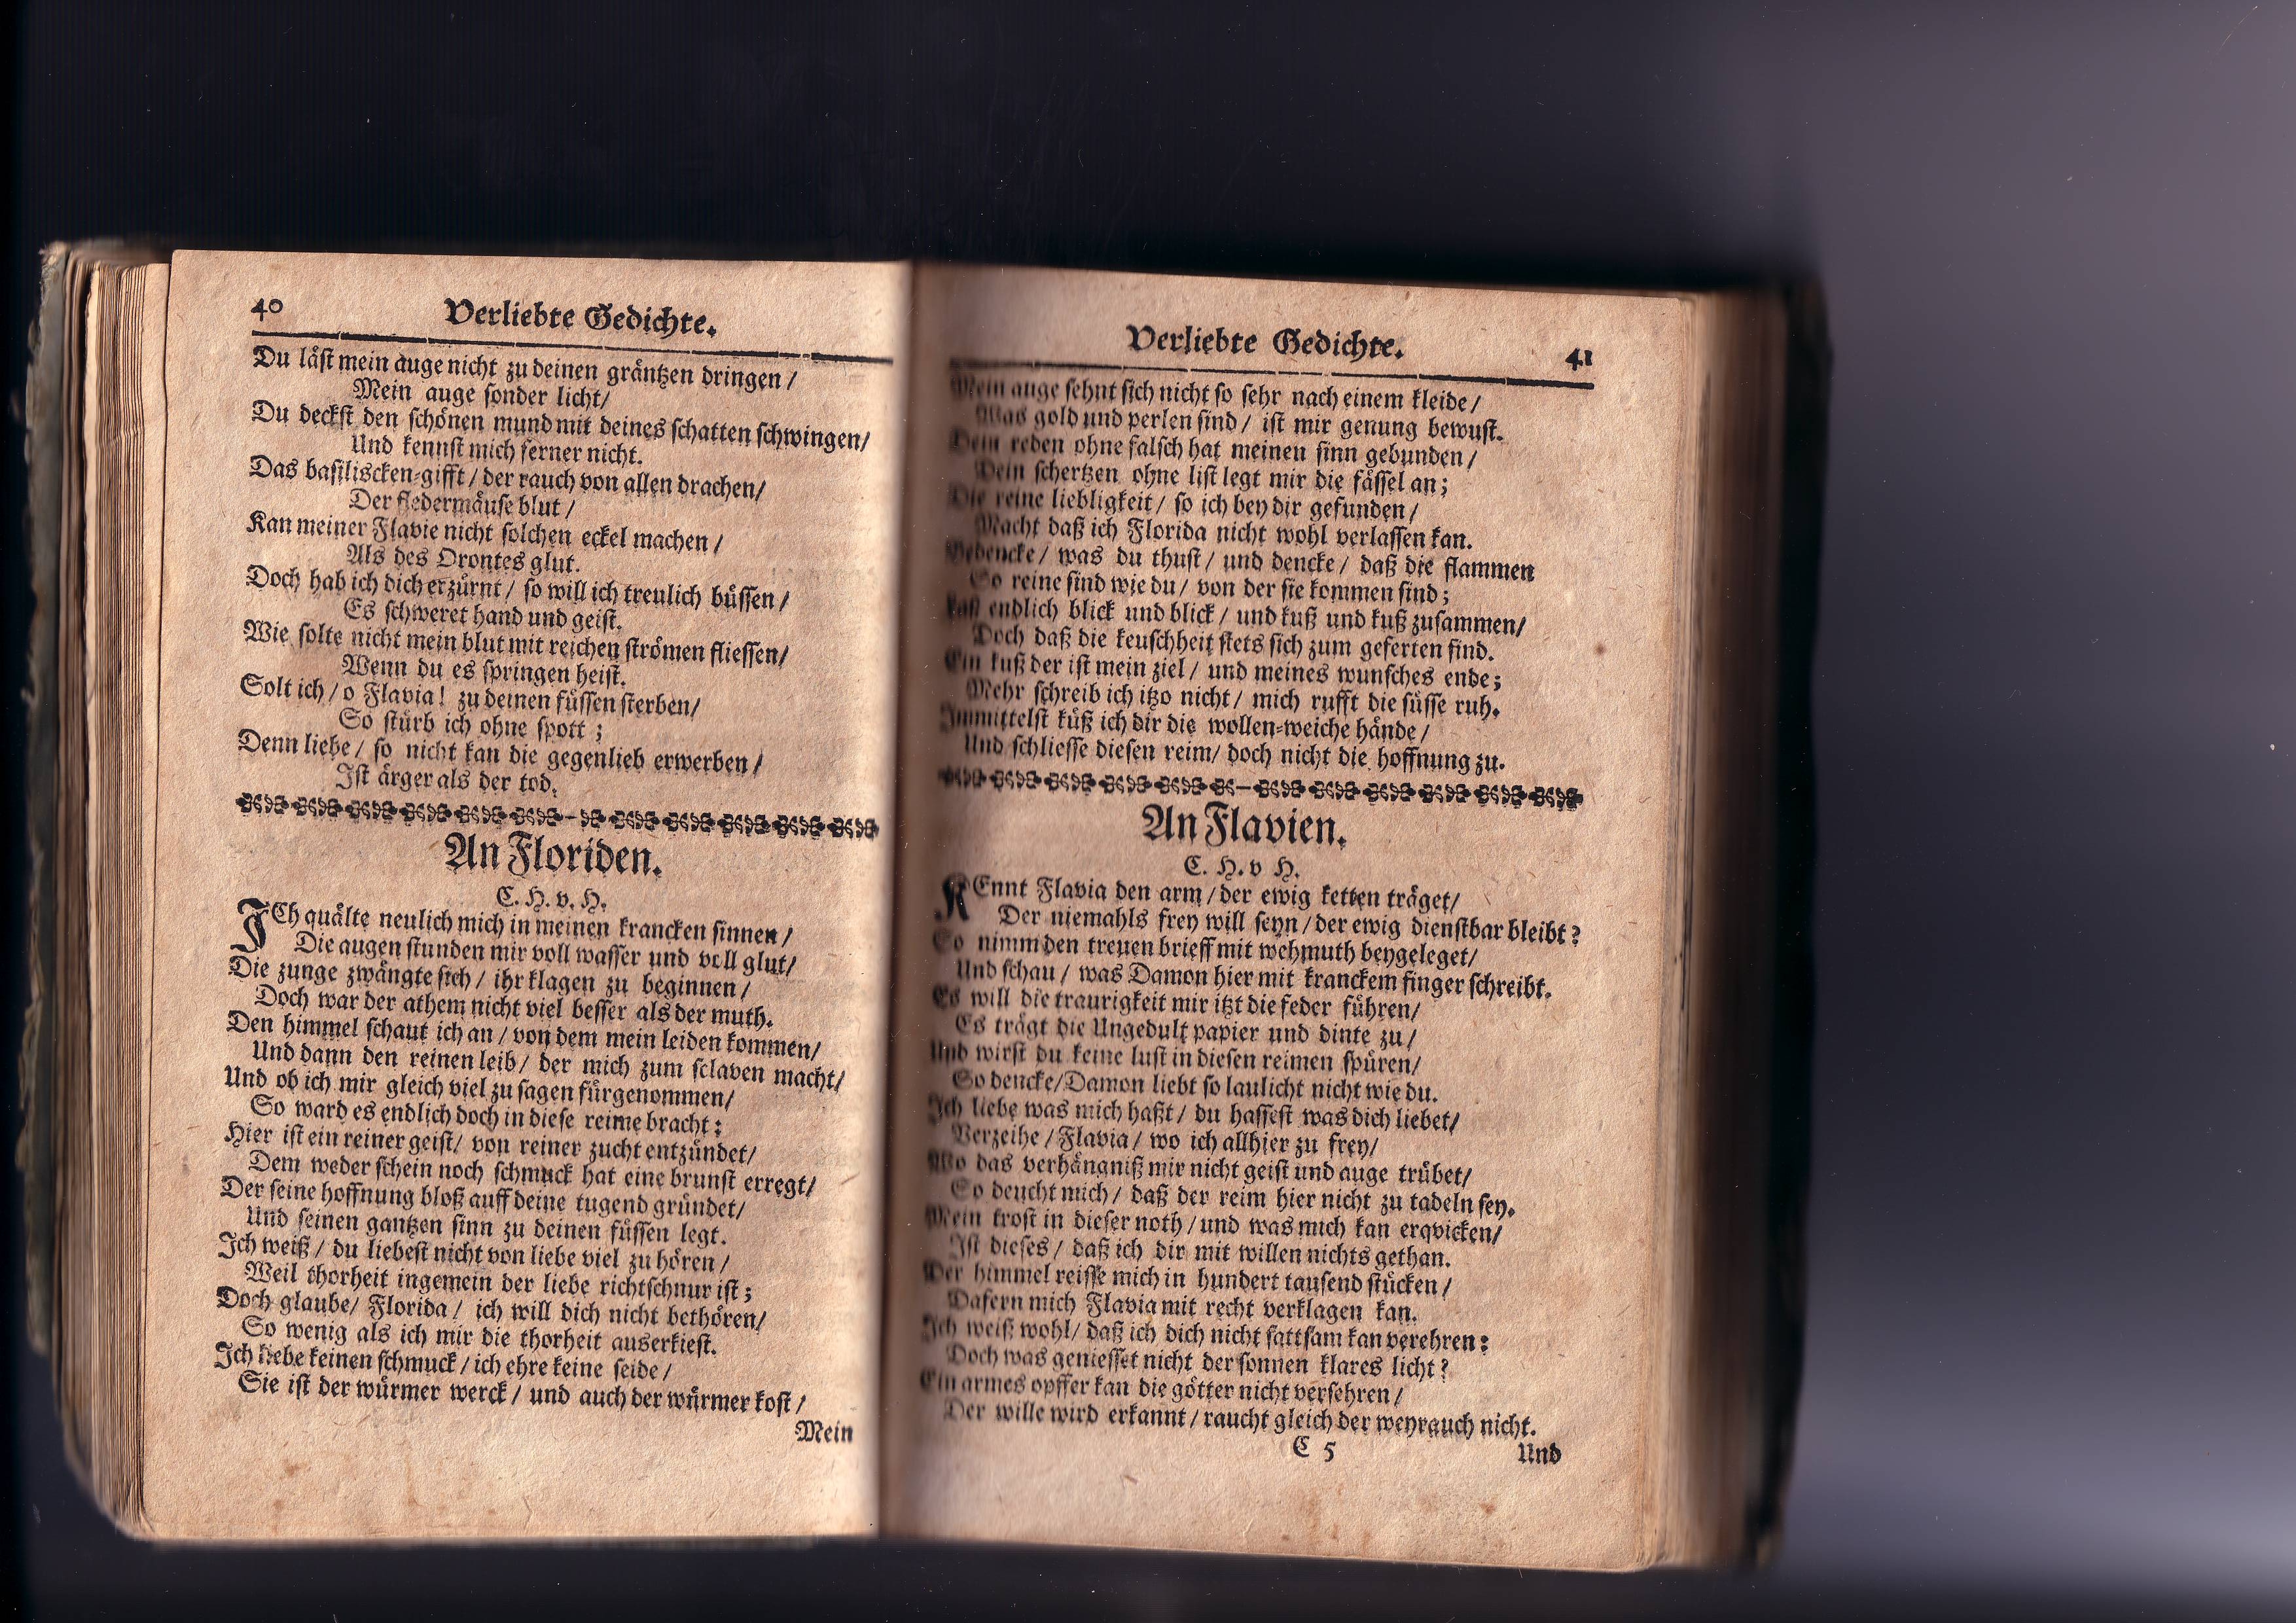 40 Verliebte Gedichte.
Du läſt mein auge nicht zu deinen gräntzen dringen /
Mein auge ſonder licht/
Du deckſt den ſchönen mund mit deines ſchatten ſchwingen/
Und kennſt mich ferner nicht.
Das baſiliscken-gifft / der rauch von allen drachen/
Der fledermäuſe blut /
Kan meiner Flavie nicht ſolchen eckel machen /
Als des Orontes glut.
Doch hab ich dich erzürnt / ſo will ich treulich büſſen /
Es ſchweret hand und geiſt.
Wie ſolte nicht mein blut mit reichen ſtrömen flieſſen/
Wenn du es ſpringen heiſt.
Solt ich / o Flavia! zu deinen füſſen ſterben/
So ſtürb ich ohne ſpott ;
Denn liebe / ſo nicht kan die gegenlieb erwerben /
Iſt ärger als der tod.
An Floriden.
C. H. v. H.
ICh quälte neulich mich in meinen krancken ſinnen /
Die augen ſtunden mir voll waſſer und voll glut/
Die zunge zwängte ſich / ihr klagen zu beginnen /
Doch war der athem nicht viel beſſer als der muth.
Den himmel ſchaut ich an / von dem mein leiden kommen/
Und dann den reinen leib / der mich zum ſclaven macht/
Und ob ich mir gleich viel zu ſagen fürgenommen/
So ward es endlich doch in dieſe reime bracht:
Hier iſt ein reiner geiſt/ von reiner zucht entzündet/
Dem weder ſchein noch ſchmuck hat eine brunſt erregt/
Der ſeine hoffnung bloß auff deine tugend gründet/
Und ſeinen gantzen ſinn zu deinen füſſen legt.
Ich weiß / du liebeſt nicht von liebe viel zu hören /
Weil thorheit ingemein der liebe richtſchnur iſt ;
Doch glaube/ Florida / ich will dich nicht bethören/
So wenig als ich mir die thorheit auserkieſt.
Ich liebe keinen ſchmuck / ich ehre keine ſeide /
Sie iſt der würmer werck / und auch der würmer koſt /
Mein
Verliebte Gedichte. 41
Mein auge ſehnt ſich nicht ſo ſehr nach einem kleide /
Was gold und perlen ſind / iſt mir genung bewuſt.
Dein reden ohne falſch hat meinen ſinn gebunden /
Dein ſchertzen ohne liſt legt mir die fäſſel an ;
Die reine liebligkeit / ſo ich bey dir gefunden /
Macht daß ich Florida nicht wohl verlaſſen kan.
Bedencke / was du thuſt / und dencke / daß die flammen
So reine ſind wie du / von der ſie kommen ſind ;
Laſt endlich blick und blick / und kuß und kuß zuſammen/
Doch daß die keuſchheit ſtets ſich zum geferten find.
Ein kuß der iſt mein ziel / und meines wunſches ende ;
Mehr ſchreib ich itzo nicht / mich rufft die ſüſſe ruh.
Immittelſt küß ich dir die wollen-weiche hände /
Und ſchlieſſe dieſen reim/ doch nicht die hoffnung zu.
An Flavien.
C. H. v H.
KEnnt Flavia den arm / der ewig ketten träget/
Der niemahls frey will ſeyn / der ewig dienſtbar bleibt?
So nimm den treuen brieff mit wehmuth beygeleget/
Und ſchau / was Damon hier mit kranckem finger ſchreibt.
Es will die traurigkeit mir itzt die feder führen/
Es trägt die Ungedult papier und dinte zu /
Und wirſt du keine luſt in dieſen reimen ſpüren/
So dencke/ Damon liebt ſo laulicht nicht wie du.
Ich liebe was mich haßt / du haſſeſt was dich liebet/
Verzeihe / Flavia / wo ich allhier zu frey/
Wo das verhängniß mir nicht geiſt und auge trübet/
So deucht mich / daß der reim hier nicht zu tadeln ſey.
Mein troſt in dieſer noth / und was mich kan erqvicken/
Iſt dieſes / daß ich dir mit willen nichts gethan.
Der himmel reiſſe mich in hundert tauſend ſtücken /
Dafern mich Flavia mit recht verklagen kan.
Ich weiß wohl/ daß ich dich nicht ſattſam kan verehren :
Doch was genieſſet nicht der ſonnen klares licht?
Ein armes opffer kan die götter nicht verſehren /
Der wille wird erkannt / raucht gleich der weyrauch nicht.
C 5 Und